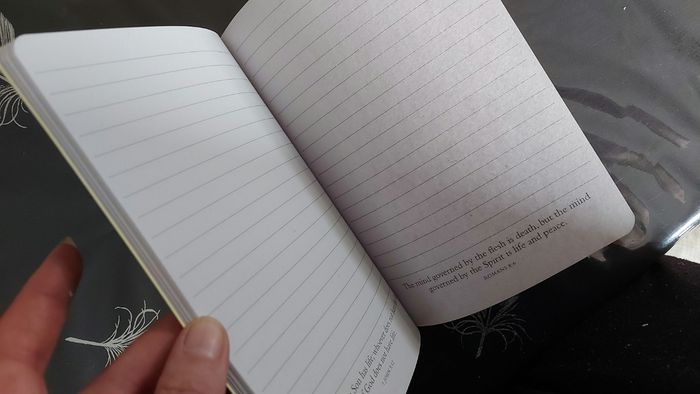 Son has life; whoever does not
God does not have life.
1 JOHN 5:12
The mind governed by the flesh is death, but the mind
governed by the Spirit is life and peace.
ROMANS 8:6